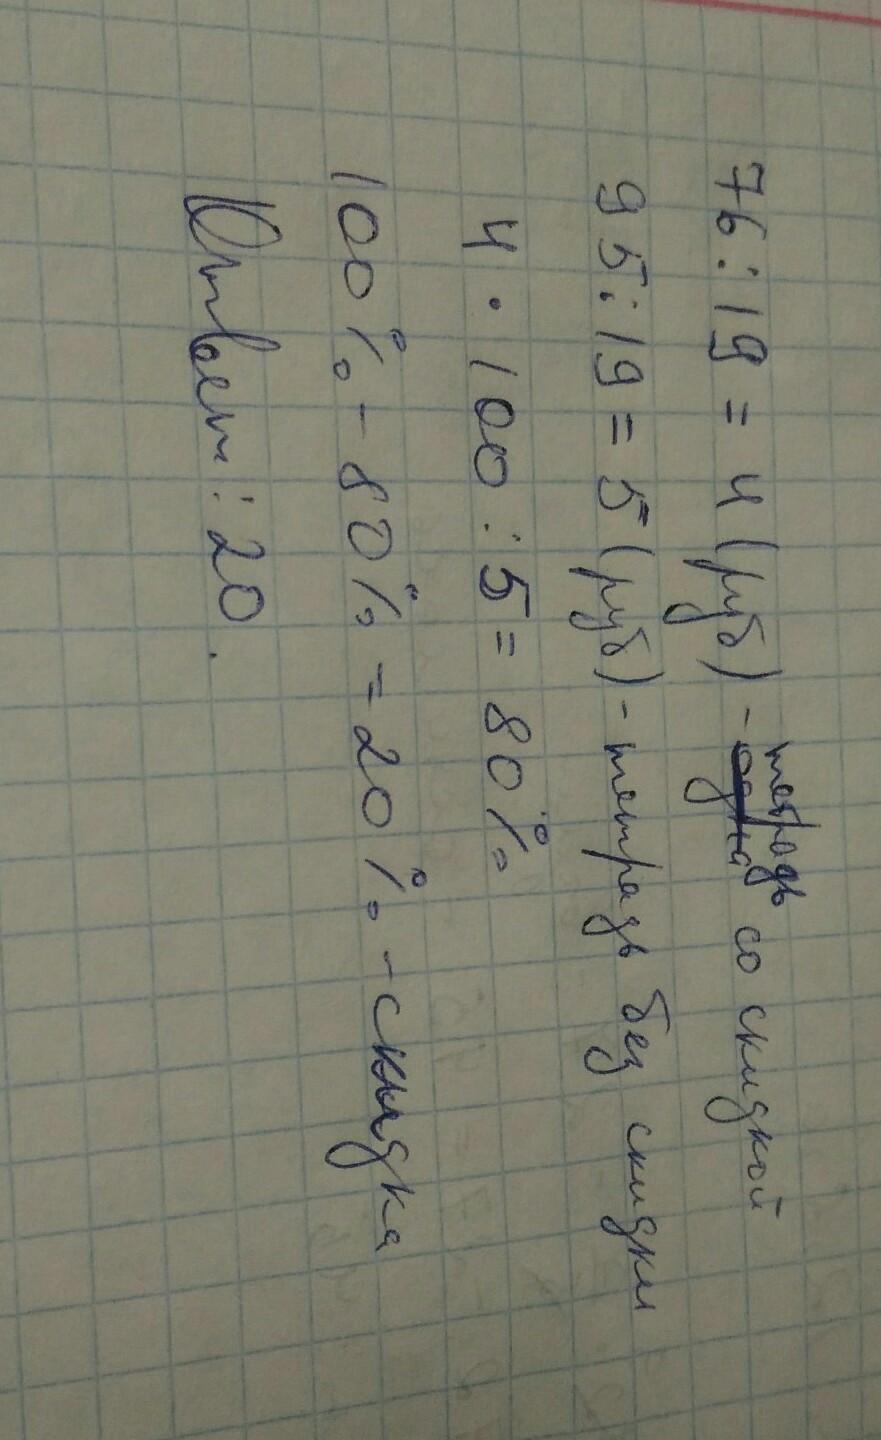 76 : 19 = 4 (руб) - тетрадь со скидкой
95 : 19 = 5 (руб) - тетрадь без скидки
4 · 100 : 5 = 80%
100% - 80% = 20% - скидка
Ответ : 20.